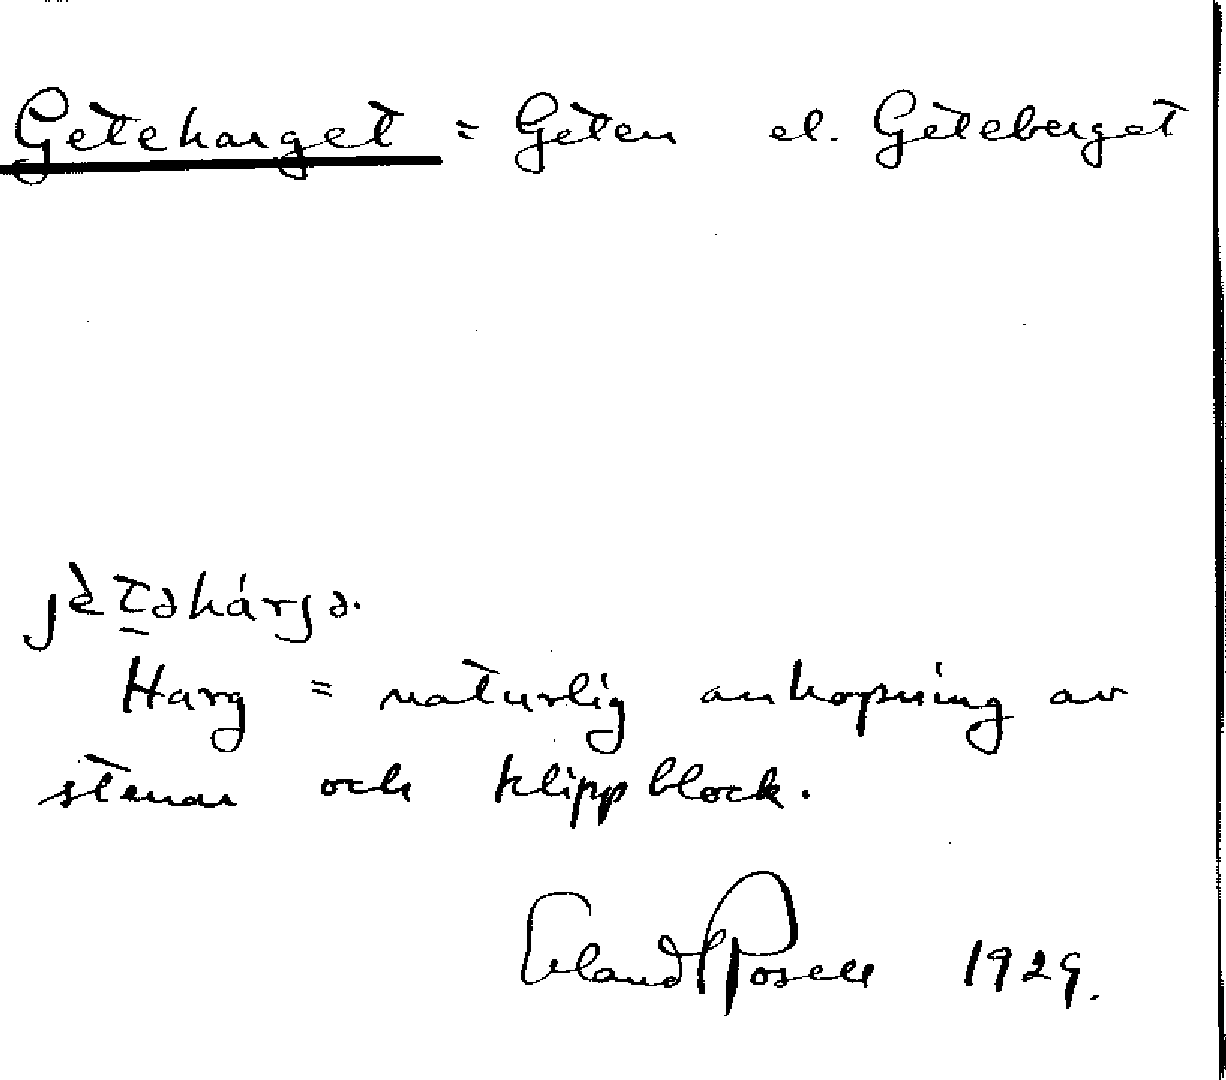 Geteharget = Geten el. Geteberget
jètəhárjə.
Harg = naturlig anhopning av
stenar och klippblock.
Erland Rosell 1929.